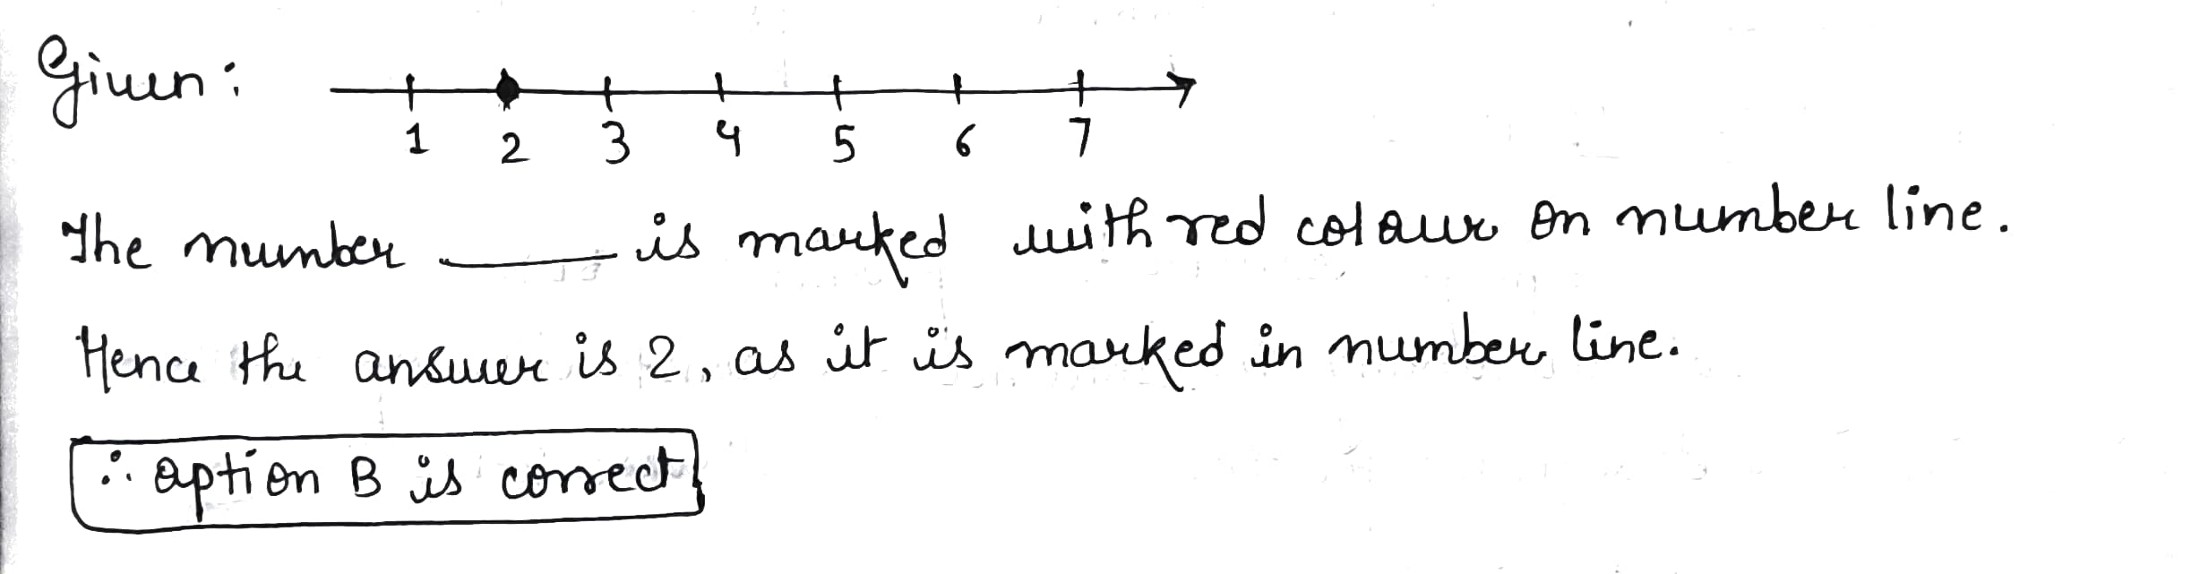 Given:
1 2 3 4 5 6 7
The number ______ is marked with red colour on number line.
Hence the answer is 2, as it is marked in number line.
∴ option B is correct